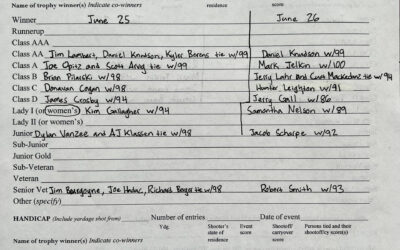 Name of trophy winner(s) Indicate co-winners residence score
Winner June 25 June 26
Runnerup
Class AAA
Class AA Jim Lambert, Daniel Knudson, Kyler Berens tie w/99 Daniel Knudson w/99
Class A Joe Opitz and Scott Arvig tie w/99 Mark Jelkin w/100
Class B Brian Pilarski w/98 Jerry Lahr and Curt Mackedanz tie w/94
Class C Donavan Cogan w/98 Hunter Leighton w/91
Class D James Crosby w/94 Jerry Gall w/86
Lady I (or women's) Kim Gallagher w/94 Samantha Nelson w/89
Lady II (or women's)
Junior Dylan VanZee and AJ Klassen tie w/98 Jacob Scharpe w/92
Sub-Junior
Junior Gold
Sub-Veteran
Veteran
Senior Vet Jim Bourgoyne, Joe Hrdac, Richard Boger tie w/98 Robert Smith w/93
Other (specify)
HANDICAP (Include yardage shot from) Number of entries Date of event
Ydg. Shooter's state of residence Event score Shootoff/ carryover score Persons tied and their shootoff/cy score(s)
Name of trophy winner(s) Indicate co-winners